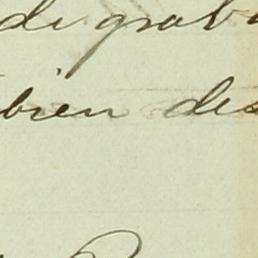 di grab
bien des